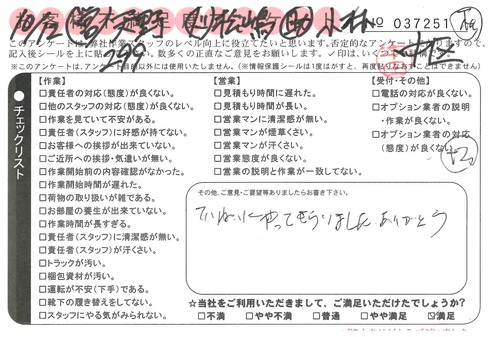 No 037251
このアンケートは、弊社作業とスタッフのレベル向上に役立てたいと思います。否定的なアンケート
記入後シールを上に貼っ
※このアンケートは、アンケート目的以外には使用いたしません。(※情報保護シールは1度はがすと、再度貼りなおすことはできません)
チェックリスト
【作業】
□責任者の対応(態度)が良くない。
□他のスタッフの対応(態度)が良くない。
□作業を見ていて不安がある。
□責任者(スタッフ)に好感が持てない。
□お客様への挨拶が出来ていない。
□ご近所への挨拶・気遣いが無い。
□作業開始前の内容確認がなかった。
□作業開始時間が遅れた。
□荷物の取り扱いが雑である。
□お部屋の養生が出来ていない。
□作業時間が長すぎる。
□責任者(スタッフ)に清潔感が無い。
□責任者(スタッフ)が汗くさい。
□トラックが汚い。
□梱包資材が汚い。
□運転が不安(下手)である。
□靴下の履き替えをしてない。
□スタッフにやる気がみられない。
【営業】
□見積もり時間に遅れた。
□見積もり時間が長い。
□営業マンに清潔感が無い。
□営業マンが煙草くさい。
□営業マンが汗くさい。
□営業態度が良くない。
□営業の説明と作業が一致してない。
【受付・その他】
□電話の対応が良くない。
□オプション業者の説明
・作業が良くない。
□オプション業者の対応
(態度)が良くない。
その他、ご意見・ご要望等ありましたらお書き下さい。
ていねいにやってもらいました ありがとう
☆当社をご利用いただきまして、ご満足いただけたでしょうか?
□不満 □やや不満 □普通 □やや満足 ☑満足